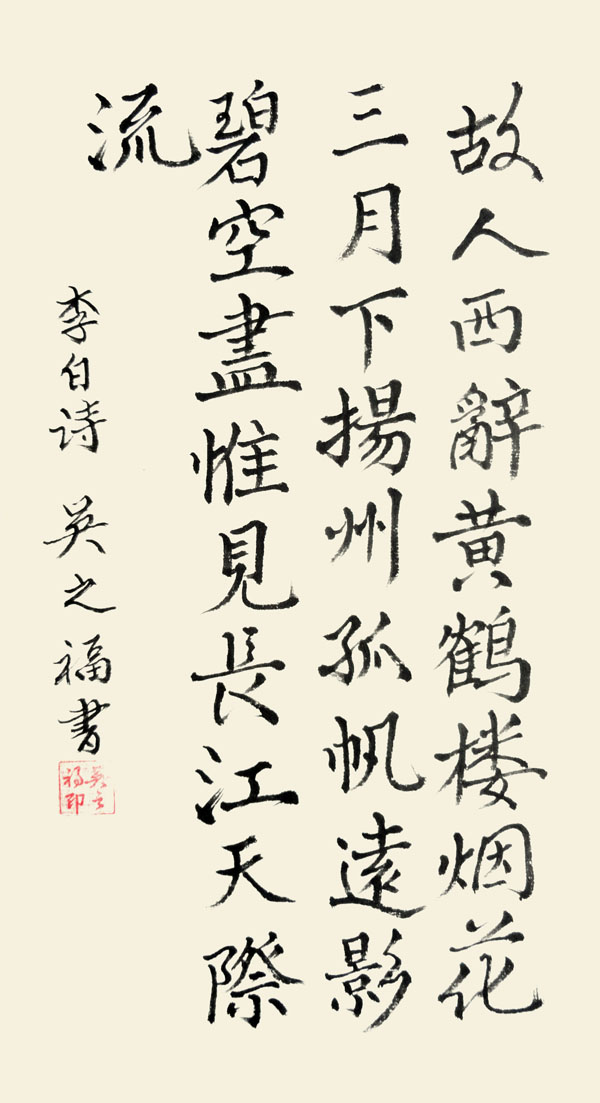 故人西辭黄鶴楼烟花
三月下揚州孤帆遠影
碧空盡惟見長江天際
流
李白诗 吴之福書
吴之福印